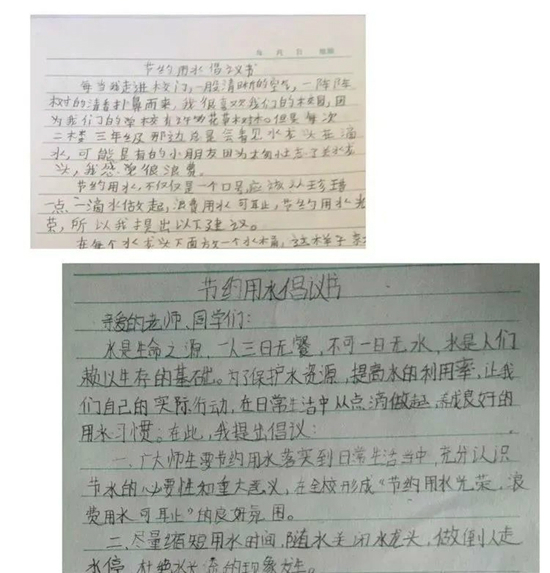 年 月 日 星期
节约用水倡议书
每当我走进校门,一股清晰的空气,一阵阵
树的清香扑鼻而来,我很喜欢我们的校园,因
为我们的学校有许多花草树木。但是每次
二楼三年级那边总是会看见水龙头在滴
水,可能是有的小朋友因为太匆忙忘了关水龙
头,我感觉很浪费。
节约用水,不仅仅是一个口号,应该从珍惜
点一滴水做起,浪费用水可耻,节约用水光
荣,所以我提出以下建议。
在每个水龙头下面放一个水桶,这样
节约用水倡议书
亲爱的老师、同学们:
水是生命之源,人三日无餐,不可一日无水,水是人们
赖以生存的基础。为了保护水资源,提高水的利用率,让我
们自己的实际行动,在日常生活中从点滴做起,养成良好的
用水习惯。在此,我提出倡议:
一、广大师生要节约用水落实到日常生活当中,充分认识
节水的必要性和重大意义,在全校形成“节约用水光荣,浪
费用水可耻”的良好氛围。
二、尽量缩短用水时间,随水关闭水龙头,做倒人走
水停,杜绝水长流的现象发生。